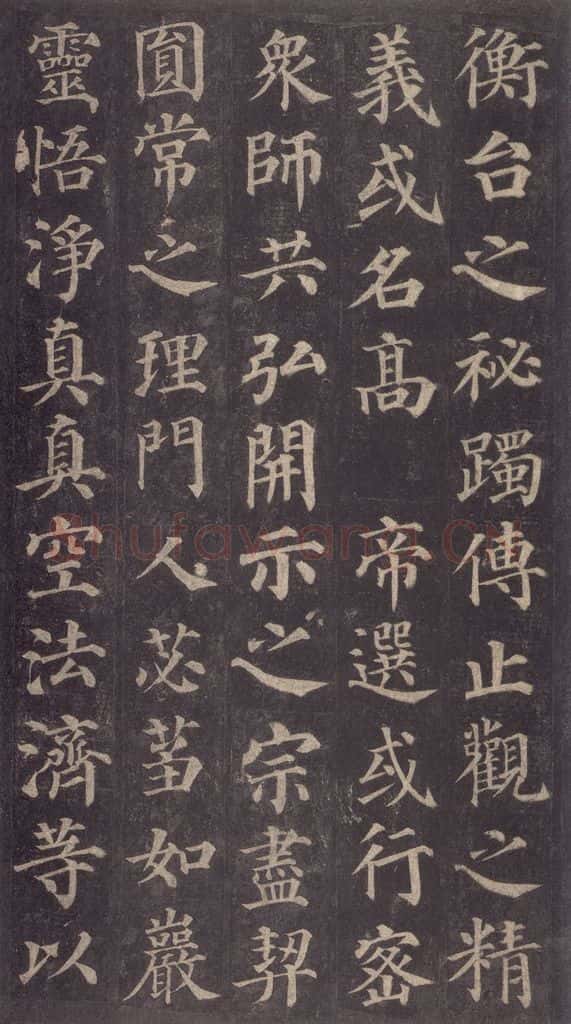 衡台之祕躅傳止觀之精
義或名髙帝選或行密
衆師共弘開示之宗盡契
圎常之理門人苾蒭如巖
靈悟淨真真空法濟等以
shufawang.CN